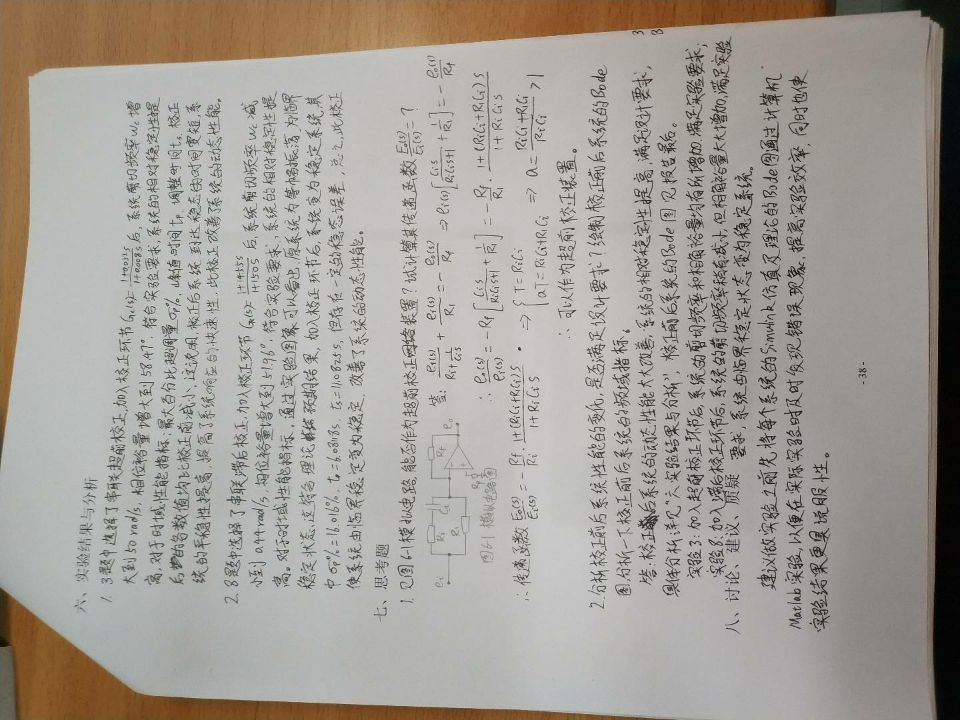 六、实验结果与分析
1. 3题中选择了串联超前校正,加入校正环节Gc(s)=(1+0.032s)/(1+0.008s)后,系统剪切频率ωc增
大到50rad/s,相位裕量增大到58.47°,符合实验要求,系统的相对稳定性提
高,对于时域性能指标:最大百分比超调量σp%、峰值时间tp、调整时间ts,校正
后的各数值均比校正前减小,这说明,校正后系统到达稳态的时间变短,系
统的平稳性提高,提高了系统响应的快速性,此校正改善了系统的动态性能。
2. 8题中选择了串联滞后校正,加入校正环节Gc(s)=(1+14.55s)/(1+150s)后,系统剪切频率ωc减
小到0.44rad/s,相位裕量增大到51.96°,符合实验要求,系统的相对稳定性提
高。对于时域性能指标,通过实验图象可以看出,原系统为等幅振荡,为临界
稳定状态,这符合理论预期结果,加入校正环节后,系统变为稳定系统,其
中σp%=16.016%,tp=6.0818s,ts=11.0825s,但存在一定的稳态误差,总之,此校正
使系统由临界稳定变为稳定,改善了系统的动态性能。
七、思考题
1. 见图6-1模拟电路,能否作为超前校正网络装置?试计算其传递函数E₀(s)/Ei(s)=?
ei R₂ C₁ R₁ Rf R₀ e₀
答: ei(s)/(Ri+1/(Cis)) + ei(s)/R₁ = -e₀(s)/Rf ⇒ ei(s)[Cis/(RiCis+1) + 1/R₁] = -e₀(s)/Rf
∴ e₀(s)/ei(s) = -Rf[Cis/(RiCis+1) + 1/R₁] = -Rf/R₁ · (1+(RiCi+R₁Ci)s)/(1+RiCis)
图6-1 模拟电路图
∴ 传递函数E₀(s)/Ei(s) = -Rf/Ri · (1+(RiCi+R₁Ci)s)/(1+RiCis) ⇒ {T=RiCi aT=RiCi+R₁Ci ⇒ a=(RiCi+R₁Ci)/(RiCi)>1
∴ 可以作为超前校正装置。
2. 分析校正前后系统性能的变化,是否满足设计要求?绘制校正前后系统的Bode
图,分析一下校正前后系统的频域指标。
答:校正后系统的动态性能大大改善,系统的相对稳定性提高,满足设计要求,
具体分析详见“六实验结果与分析”,校正前后系统的Bode图见报告最后。
实验3:加入超前校正环节后,系统的剪切频率和相角裕量均有所增加,满足实验要求;
实验8:加入滞后校正环节后,系统的剪切频率稍有减小,但相角裕量大大增加,满足实验
八、讨论、建议、质疑 要求,系统由临界稳定状态变为稳定系统。
建议做实验之前先将每个系统的Simulink仿真及理论的Bode图通过计算机
Matlab实验,以便在实际实验时及时发现错误现象,提高实验效率,同时也使
实验结果更具说服性。
- 38 -